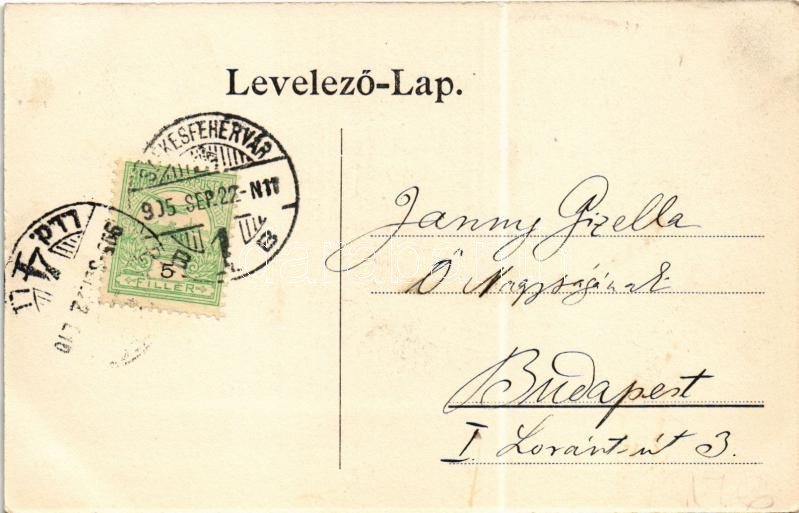 Levelező-Lap.
KESFEHÉRVÁR
905 SEP. 22-N11
B
5
FILLÉR
Janny Gizella
Ő Nagyságának
Budapest
I. Loránt-út 3.